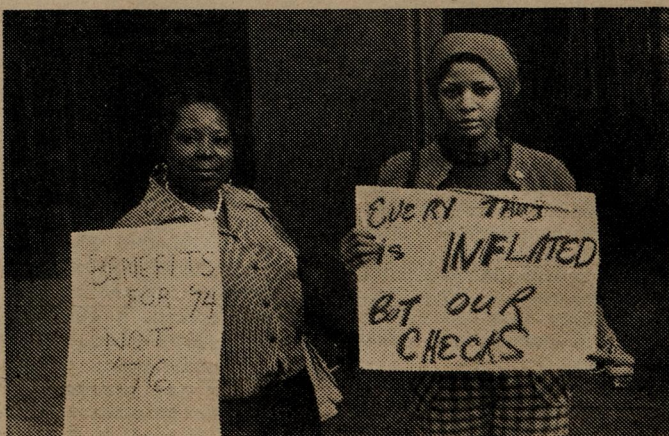 BENEFITS
FOR '74
NOT
'76
EVERY THING
is INFLATED
BUT OUR
CHECKS